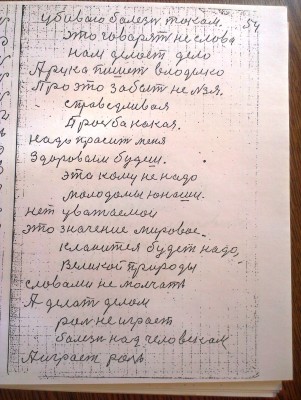 54
убиваю болезн токсам.
это говарят не слова
нам делает дело
А рука пишет владимо
Про это забыт не льзя.
справедливая
Прозба какая.
надо прасит меня
Здоровам будеш.
это кому не надо
молодомы юнаши.
нет уважаемои
это значение мировое.
кланится будет надо,
великой природы
словами не молчать
А делат делом
рол не играет
болезн над человекам
А играет роль